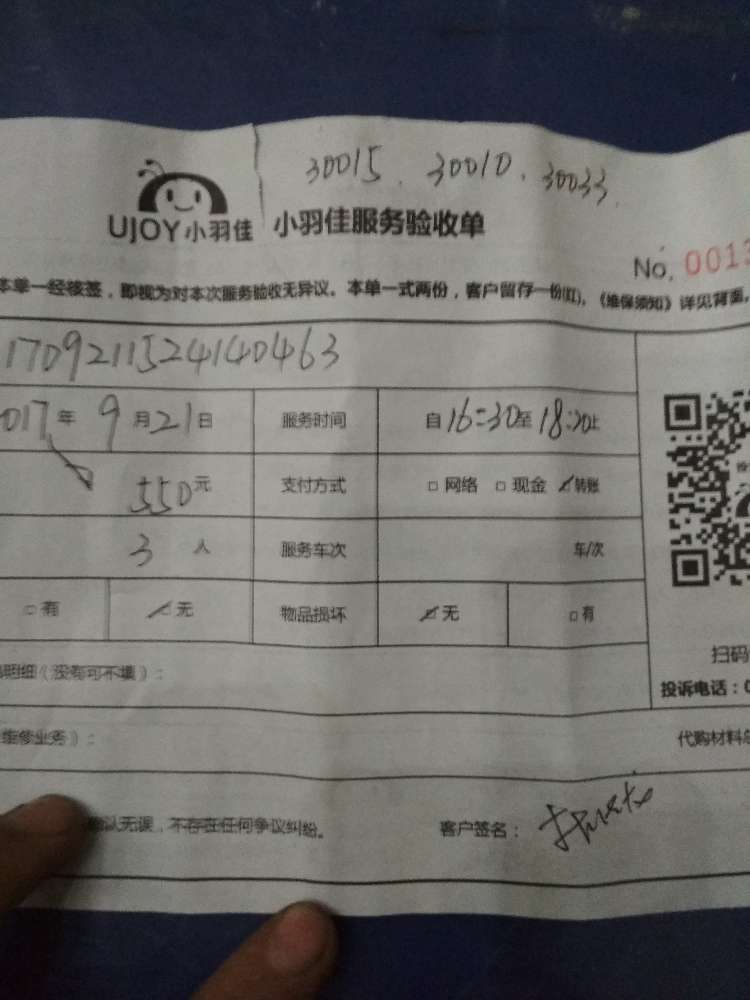 30015、30010、30033、
UJOY小羽佳 小羽佳服务验收单
No. 0013
本单一经核签，即视为对本次服务验收无异议。本单一式两份，客户留存一份(红)。《维保须知》详见背面。
1709211524140463
017年 9月21日 服务时间 自16:30至18:30止
550元 支付方式 □网络 □现金 ☑转账
3 人 服务车次 车/次
□有 ☑无 物品损坏 ☑无 □有
扫码
明细（没有可不填）：
投诉电话：0
维修业务》：
代购材料总
确认无误，不存在任何争议纠纷。 客户签名：